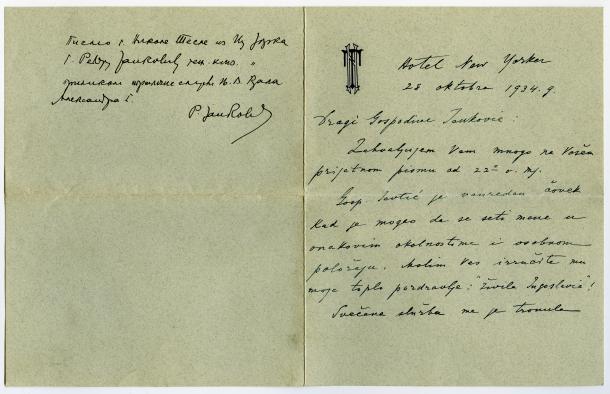 Писмо г. Николе Тесле из Њу Јорка
Г. Радоју Јанковићу ген. конз.
приликом трагичне смрти Њ. В. Краља
Александра I.
Р. Јанковић
Hotel New Yorker
28 oktobra 1934. g.
Dragi Gospodine Jankoviću:
Zahvaljujem Vam mnogo na Vašem
prijatnom pismu od 22º o. mj.
Gosp. Jevtić je vanredan čovek
Kad je mogao da se seti mene u
onakovim okolnostima i osobnom
položaju. Molim Vas izručite mu
moje toplo pozdravlje: "Živila Jugoslavia"!
Svečana služba me je tronula